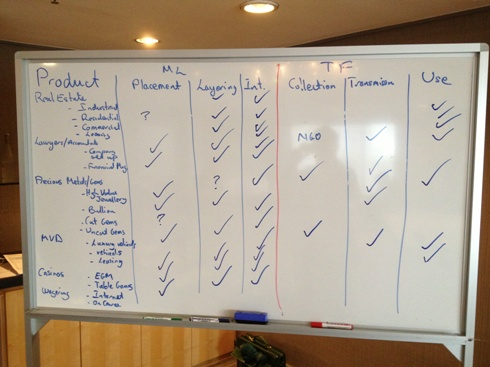 ML TF
Product Placement Layering Int. Collection Transmission Use
Real Estate
- Industrial
- Residential ?
- Commercial
- Leasing NGO
Lawyers/Accountants
- Company set up
- Financial Plng
Precious Metals/Gems ?
- High Value Jewellery
- Bullion
- Cut Gems ?
- Uncut Gems
MVD
- Luxury vehicles
- vehicles
- Leasing
Casinos - EGM
- Table Games
Wagering - Internet
- On Course